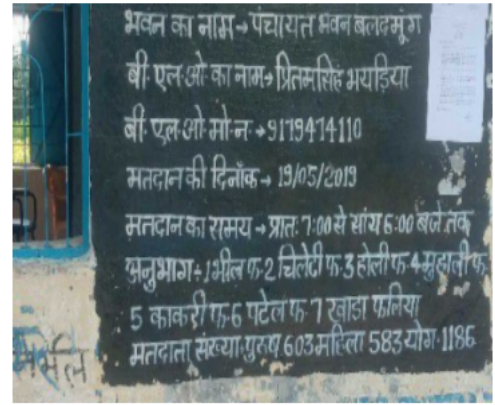 भवन का नाम→पंचायत भवन बलदमूंग
बी.एल.ओ का नाम→प्रितमसिंह भयड़िया
बी.एल.ओ.मो.न.→9179474110
मतदान की दिनाँक→19/05/2019
मतदान का समय→प्रात:7:00 से सांय 6:00 बजे तक
अनुभाग÷1भील फ.2 चिलेटी फ.3 होली फ.4 मुहाली फ.
5 काकरी फ.6 पटेल फ.7 खोडा फलिया
मतदाता संख्या.पुरुष 603 महिला 583 योग.1186